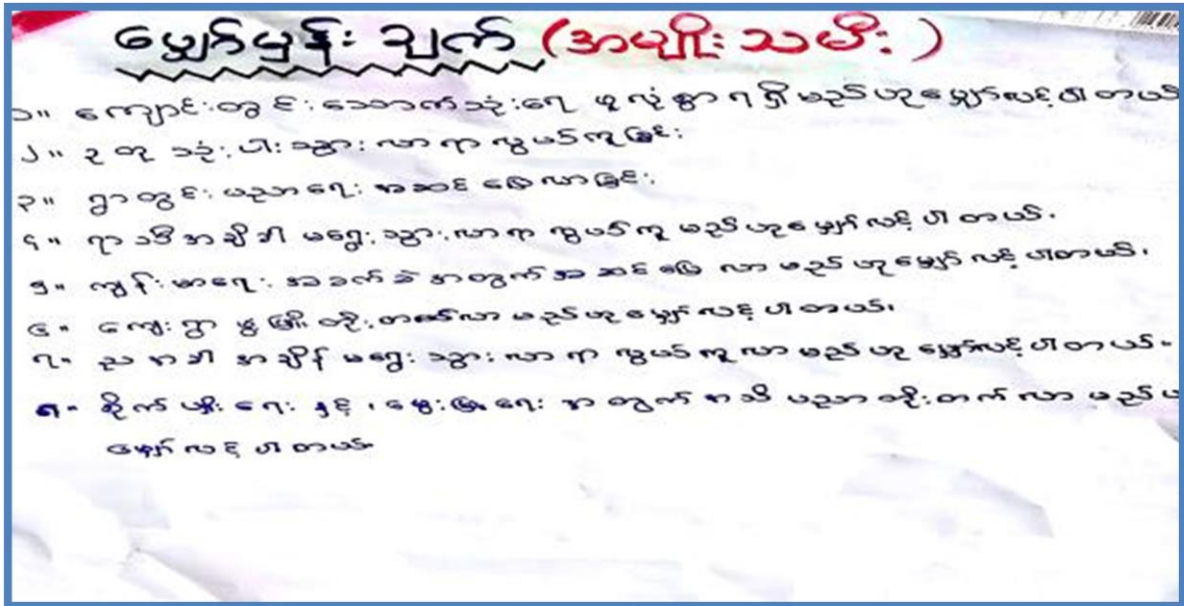 မျှော်မှန်းချက် (အမျိုးသမီး)
၁။ ကျောင်းတွင်းသောက်သုံးရေ ဖူလုံစွာရရှိမည်ဟုမျှော်လင့်ပါတယ်
၂။ ဥတုသုံးပါးသွားလာရာလွယ်ကူခြင်း
၃။ ရွာတွင်းပညာရေးအဆင်ပြေလာခြင်း
၄။ ရာသီအချိန်မရွေးသွားလာရာလွယ်ကူမည်ဟုမျှော်လင့်ပါတယ်
၅။ ကျန်းမာရေးအခက်ခဲအတွက်အဆင်ပြေလာမည်ဟုမျှော်လင့်ပါတယ်
၆။ ကျေးရွာဖွံ့ဖြိုးတိုးတတ်လာမည်ဟုမျှော်လင့်ပါတယ်
၇။ ညအခါအချိန်မရွေးသွားလာရာလွယ်ကူလာမည်ဟုမျှော်လင့်ပါတယ်
၈။ စိုက်ပျိုးရေးနှင့်၊မွေးမြူရေးအတွက်အသိပညာတိုးတက်လာမည်ဟ
မျှော်လင့်ပါတယ်